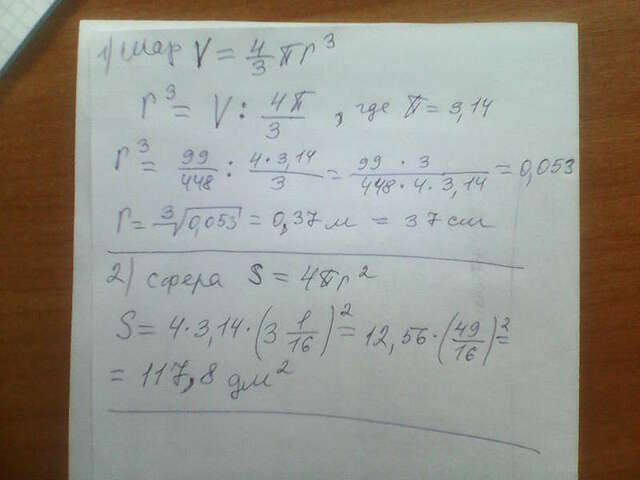 1) шар V = 4/3 πr³
r³ = V : 4π/3 , где π = 3,14
r³ = 99/448 : 4·3,14/3 = 99·3/448·4·3,14 = 0,053
r = ³√0,053 = 0,37 м = 37 см
2) сфера S = 4πr²
S = 4·3,14·(3 1/16)² = 12,56·(49/16)² =
= 117,8 дм²